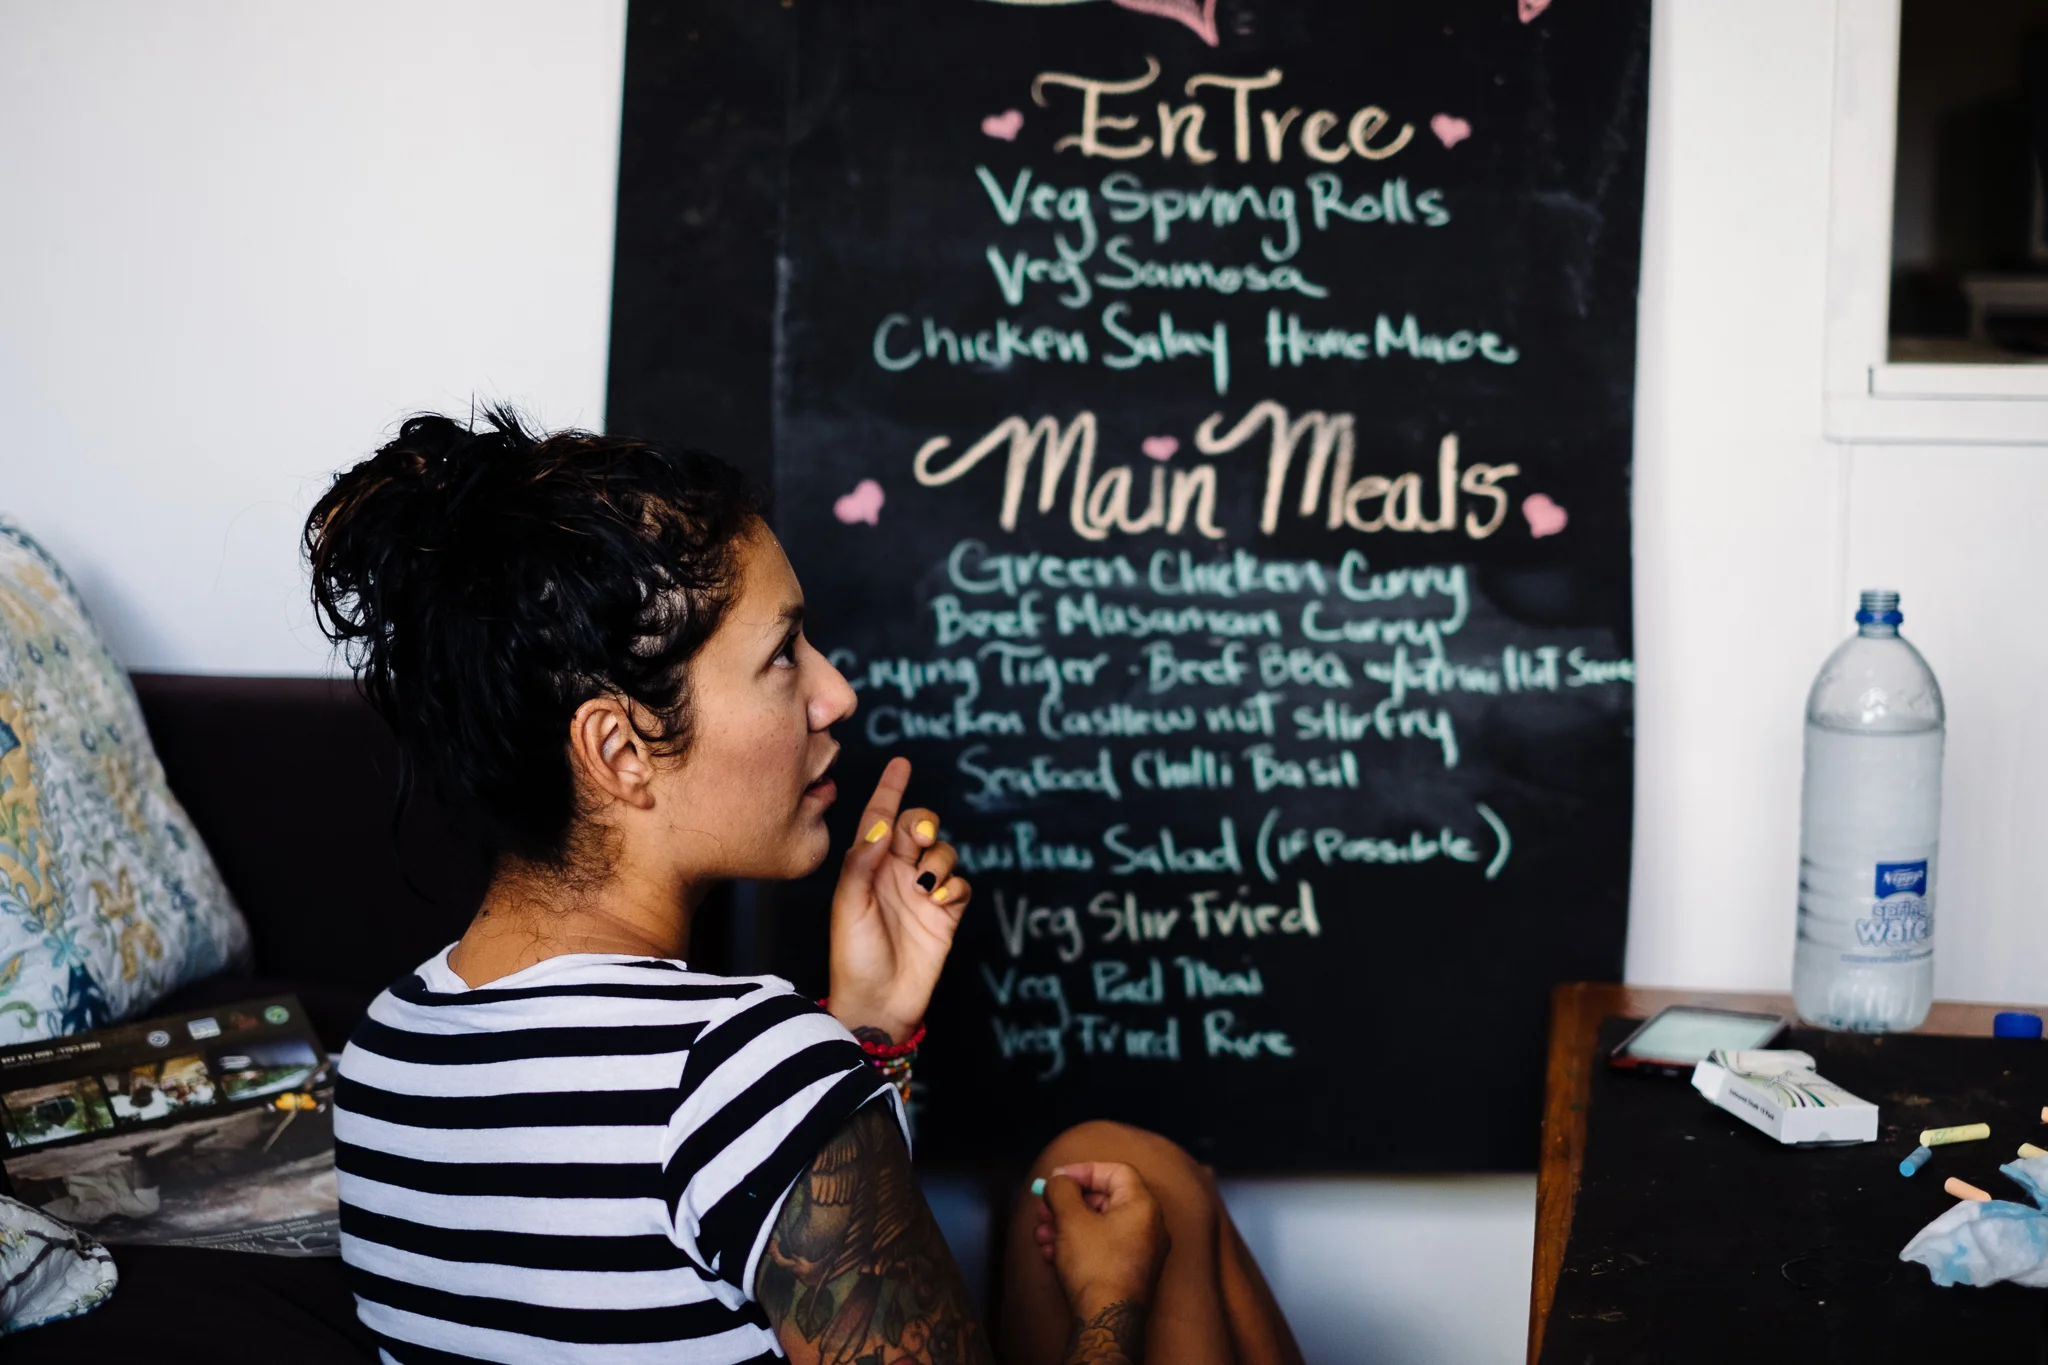 EnTree
Veg Spring Rolls
Veg Samosa
Chicken Satay HomeMade
Main Meals
Green Chicken Curry
Beef Masaman Curry
Crying Tiger - Beef BBQ w/ Hot Sauce
Chicken Cashew nut stirfry
Seafood Chilli Basil
Salad (if Possible)
Veg Stir Fried
Veg Pad Thai
Veg Fried Rice
spring
Water